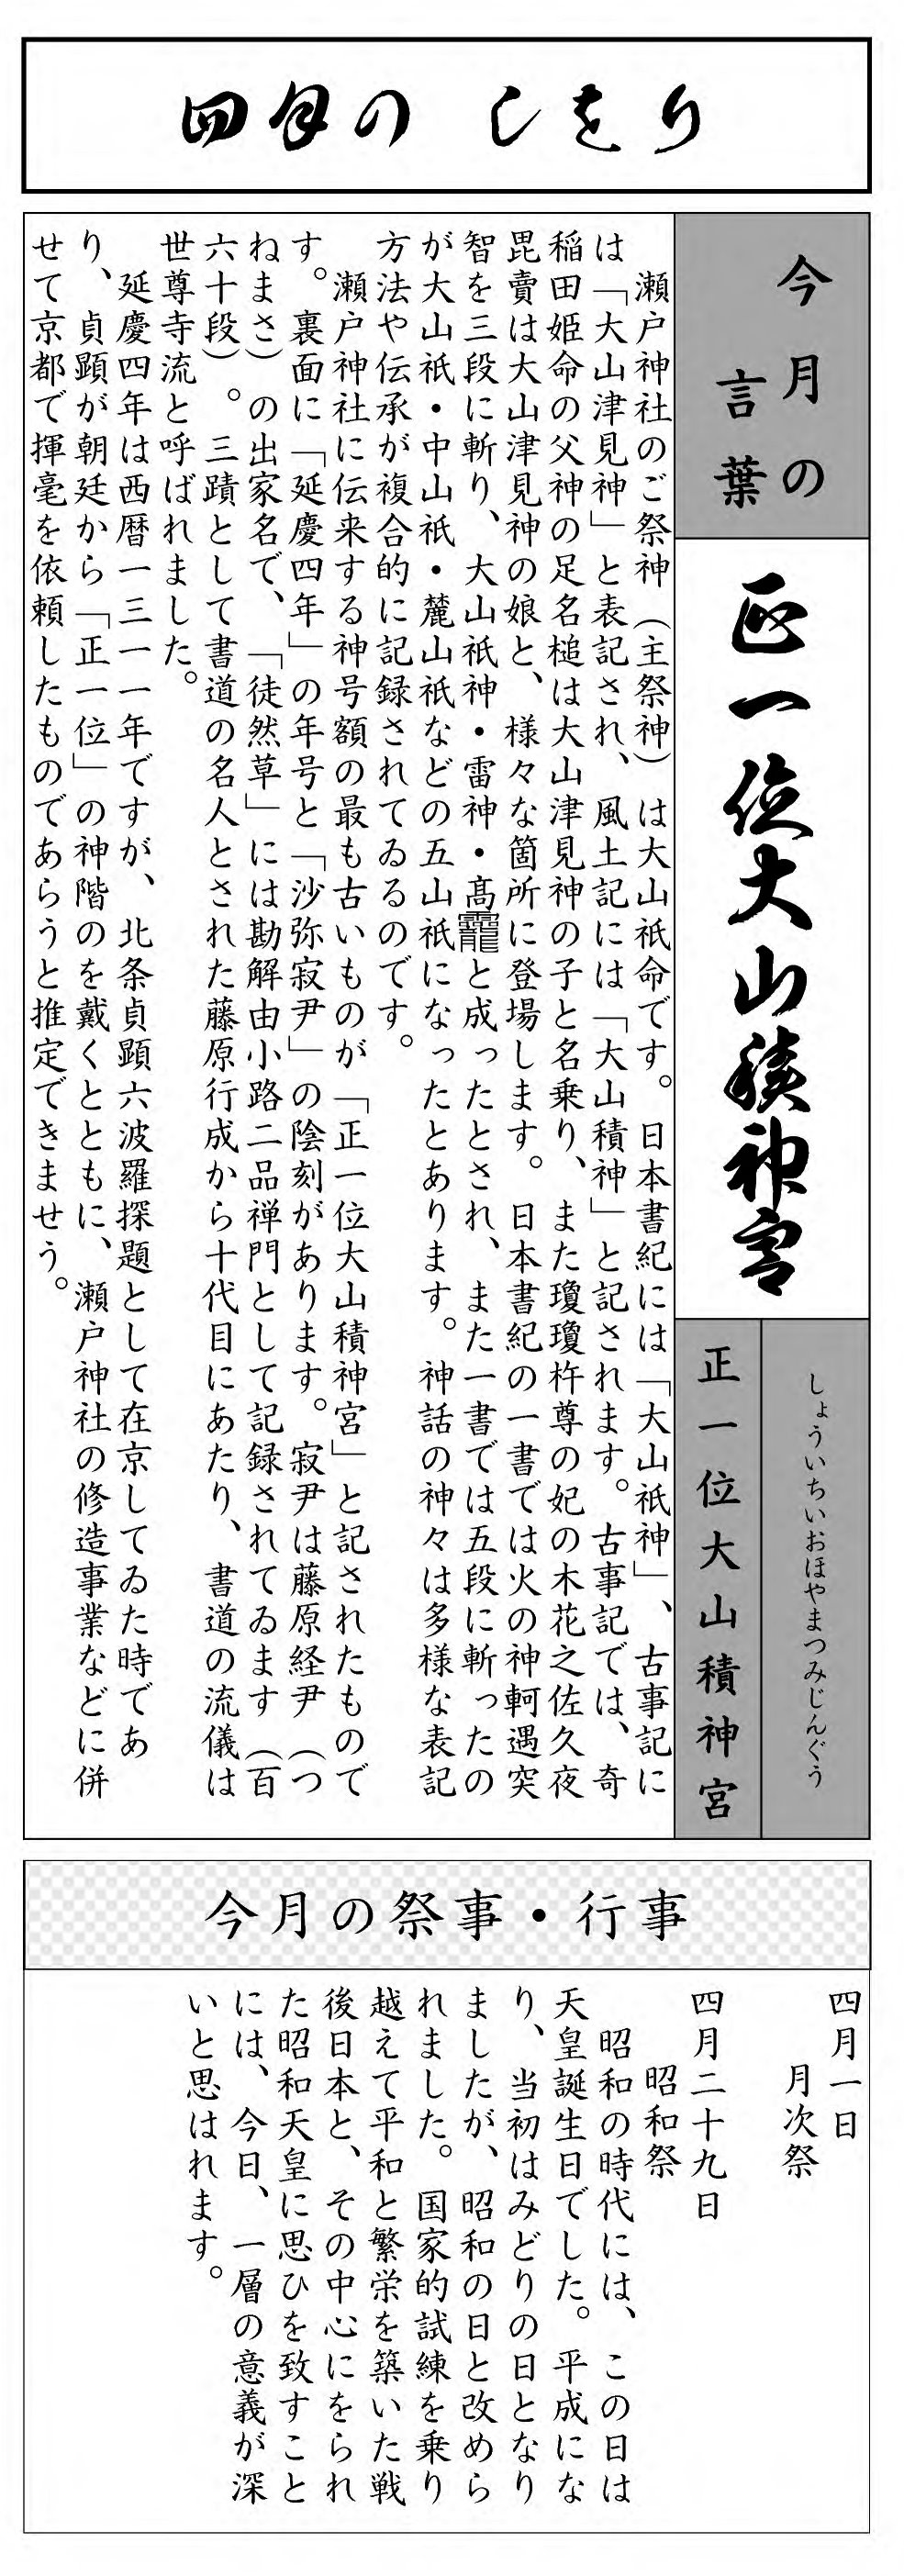 四月の しをり
今月の
言葉
正一位大山積神宮
しょういちいおほやまつみじんぐう
正一位大山積神宮
瀬戸神社のご祭神（主祭神）は大山祇命です。日本書紀には「大山祇神」、古事記に
は「大山津見神」と表記され、風土記には「大山積神」と記されます。古事記では、奇
稲田姫命の父神の足名槌は大山津見神の子と名乗り、また瓊瓊杵尊の妃の木花之佐久夜
毘賣は大山津見神の娘と、様々な箇所に登場します。日本書紀の一書では火の神軻遇突
智を三段に斬り、大山祇神・雷神・高龗と成ったとされ、また一書では五段に斬ったの
が大山祇・中山祇・麓山祇などの五山祇になったとあります。神話の神々は多様な表記
方法や伝承が複合的に記録されてゐるのです。
瀬戸神社に伝来する神号額の最も古いものが「正一位大山積神宮」と記されたもので
す。裏面に「延慶四年」の年号と「沙弥寂尹」の陰刻があります。寂尹は藤原経尹（つ
ねまさ）の出家名で、「徒然草」には勘解由小路二品禅門として記録されてゐます（百
六十段）。三蹟として書道の名人とされた藤原行成から十代目にあたり、書道の流儀は
世尊寺流と呼ばれました。
延慶四年は西暦一三一一年ですが、北条貞顕六波羅探題として在京してゐた時であ
り、貞顕が朝廷から「正一位」の神階のを戴くとともに、瀬戸神社の修造事業などに併
せて京都で揮毫を依頼したものであらうと推定できませう。
今月の祭事・行事
四月一日
月次祭
四月二十九日
昭和祭
昭和の時代には、この日は
天皇誕生日でした。平成にな
り、当初はみどりの日となり
ましたが、昭和の日と改めら
れました。国家的試練を乗り
越えて平和と繁栄を築いた戦
後日本と、その中心にをられ
た昭和天皇に思ひを致すこと
には、今日、一層の意義が深
いと思はれます。